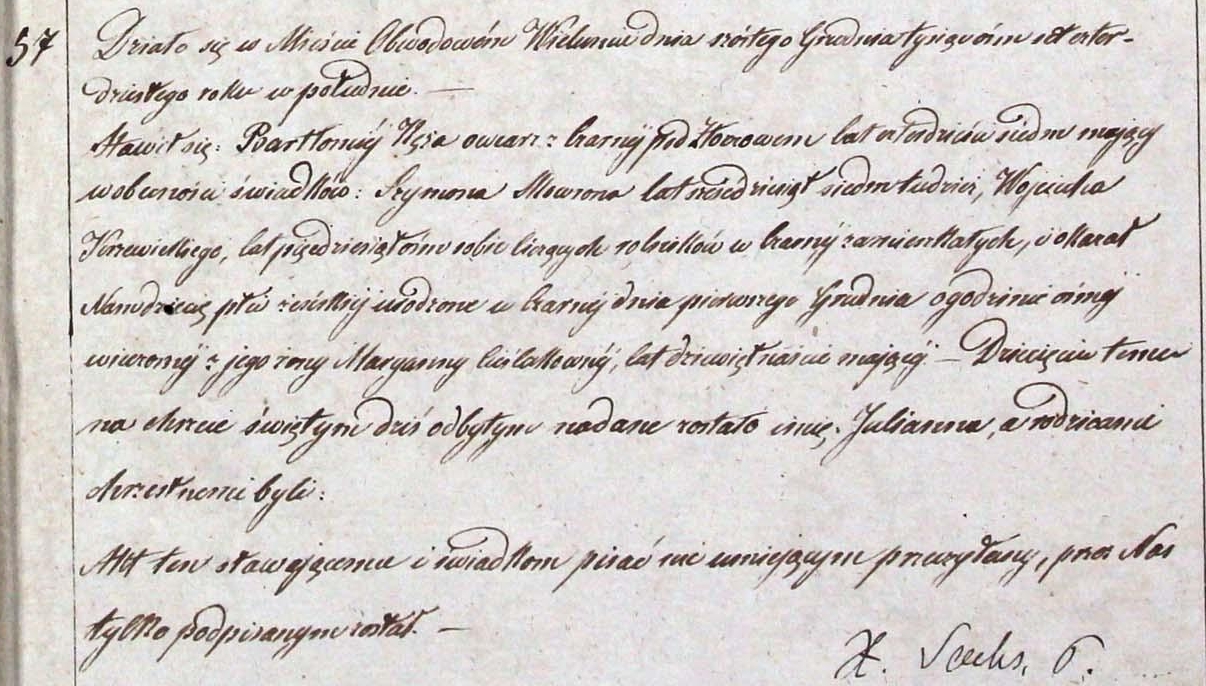 57
Działo się w Mieście Obwodowém Wieluniu dnia szóstego Grudnia tysiąc ósm set czter-
dziestego roku w południe. —
Stawił się: Bartłomiéy owczarz z Czarnéy pod lat czterdzieści siedm maiący
w obecności świadków: Szymona lat sześdziesiąt siedm tudzież, Woyciecha
lat pięćdziesiąt ósm sobie liczących rolników w Czarnéy zamieszkałych, i okazał
Nam dziecię płci żeńskiéy urodzone w Czarnéy dnia pierwszego Grudnia o godzinie ósméy
wieczornéy z jego żony Maryanny Cieślakownéy, lat dziewiętnaście maiącéy — Dziecięciu temu
na chrzcie świętym dziś odbytym nadane zostało imię. Julianna, a rodzicami
chrzestnemi byli:
Akt ten stawaiącemu i świadkom pisać nie umieiącym przeczytany, przez Nas
tylko podpisanym został. —
X.